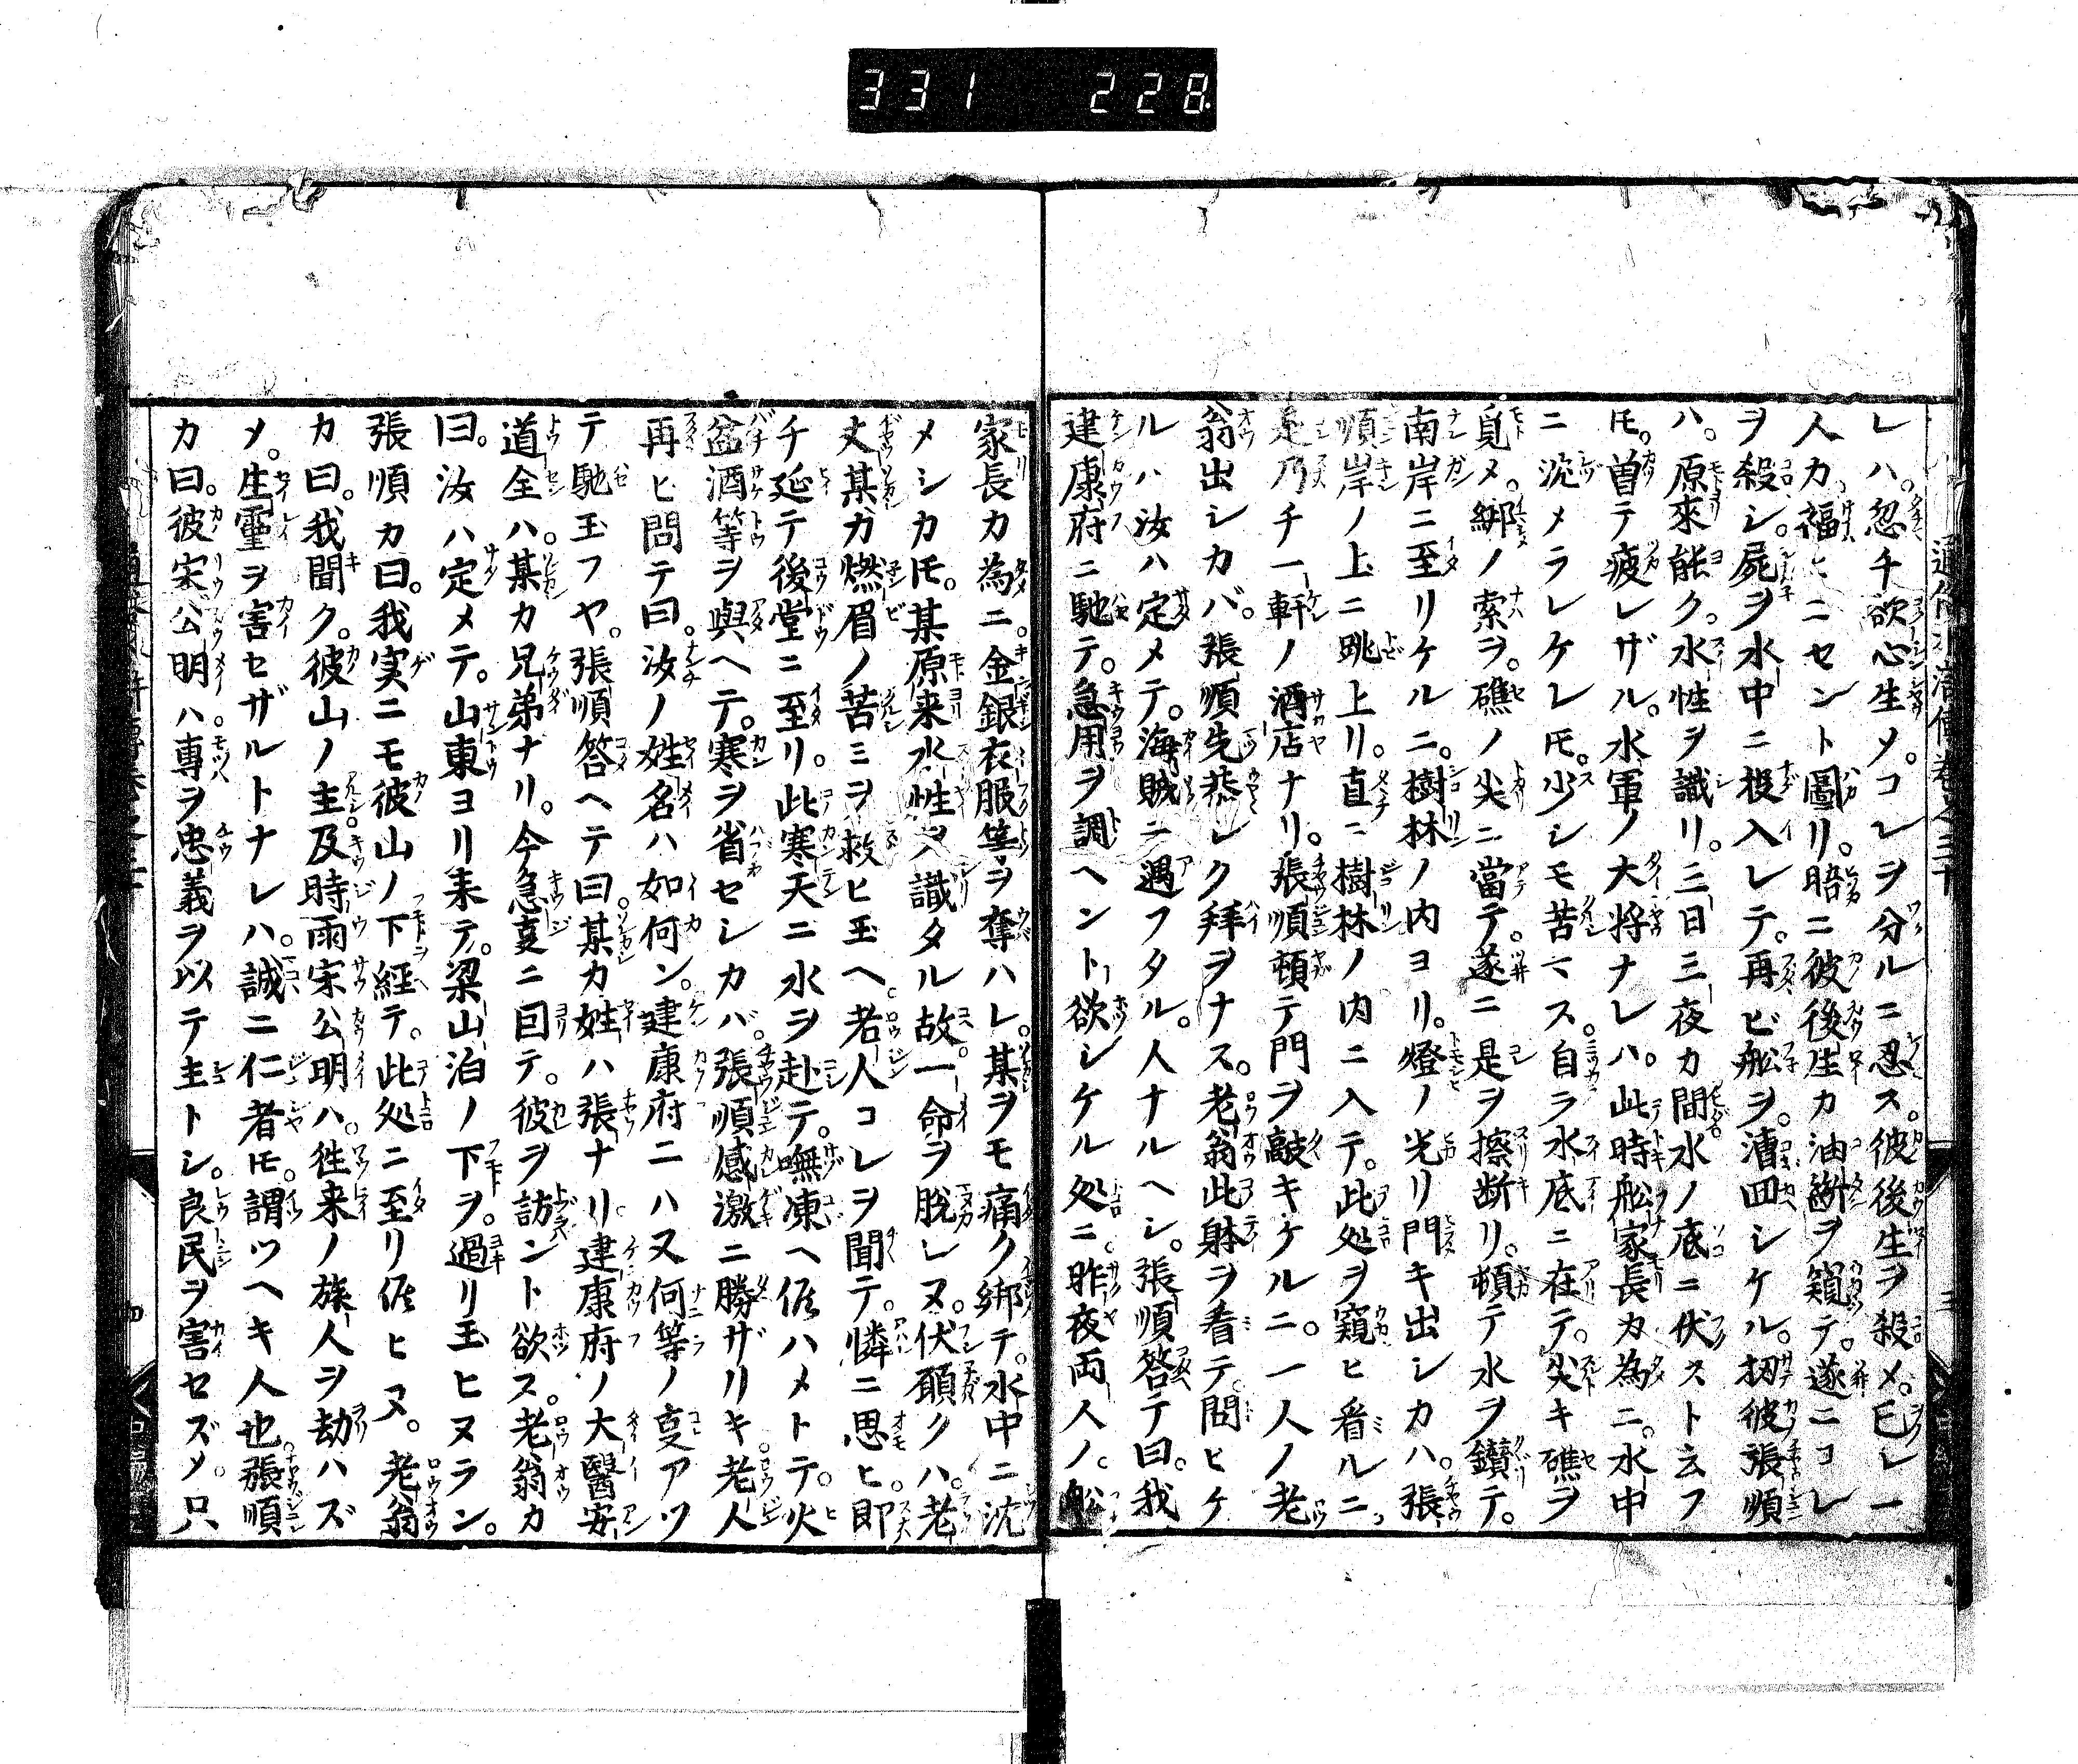 331 228
レハ。忽チ欲心生メ。コレヲ分ルニ忍ス。彼後生ヲ殺メ。巳レ一
人カ。福ヒニセント圖リ。暗ニ彼後生カ油斷ヲ窺テ。遂ニコレ
ヲ殺シ。屍ヲ水中ニ投入レテ。再ビ舩ヲ。漕回シケル。扨彼張順
ハ。原來能ク。水性ヲ識リ。三日三夜カ間水ノ底ニ伏スト云フ
𪜈。曽テ疲レザル。水軍ノ大將ナレハ。此時舩家長カ為ニ。水中
ニ沈メラレケレ𪜈。少シモ苦マス。自ラ水底ニ在テ。尖キ礁ヲ
覓メ。綁ノ索ヲ。礁ノ尖ニ當テ。遂ニ是ヲ擦断リ。頓テ水ヲ鑚テ。
南岸ニ至リケルニ。樹林ノ内ヨリ。燈ノ光リ門キ出シカハ。張
順岸ノ上ニ跳上リ。直ニ樹林ノ内ニ入テ。此処ヲ窺ヒ看ルニ。
是乃チ一軒ノ酒店ナリ。張順頓テ門ヲ敲キケルニ。一人ノ老
翁出シカバ。張順先恭シク拜ヲナス。老翁此躰ヲ看テ。問ヒケ
ルハ汝ハ定メテ。海賊ニ遇フタル。人ナルヘシ。張順答テ曰。我
建康府ニ馳テ。急用ヲ調ヘント欲シケル処ニ。昨夜両人ノ。舩
家長カ為ニ。金銀衣服等ヲ奪ハレ。某ヲモ痛ク綁テ。水中ニ沈
メシカ𪜈。某原来水性ヲ識タル故。一命ヲ脱レヌ。伏願クハ。老
丈某ガ燃眉ノ苦ミヲ救ヒ玉ヘ。老人コレヲ聞テ。憐ニ思ヒ。即
チ延テ後堂ニ至リ。此寒天ニ水ヲ赴テ。嘸凍ヘ侭ハメトテ。火
盆酒等ヲ與ヘテ。寒ヲ省セシカバ。張順感激ニ勝ザリキ老人
再ヒ問テ曰。汝ノ姓名ハ如何ン。建康府ニハ又何等ノ㕝アツ
テ馳玉フヤ。張順答ヘテ曰。某カ姓ハ張ナリ。建康府ノ大醫安
道全ハ。某カ兄弟ナリ。今急㕝ニ囙テ。彼ヲ訪ント欲ス。老翁カ
曰。汝ハ定メテ。山東ヨリ来テ。梁山泊ノ下ヲ。過リ玉ヒヌラン。
張順カ曰。我実ニモ彼山ノ下経テ。此処ニ至リ侭ヒヌ。老翁
カ曰。我聞ク。彼山ノ主及時雨宋公明ハ。徃来ノ旅人ヲ劫ハズ
メ。生霊ヲ害セザルトナレハ。誠ニ仁者𪜈。謂ツヘキ人也。張順
カ曰。彼宋公明ハ専ヲ忠義ヲ以テ主トシ。良民ヲ害セズメ。只